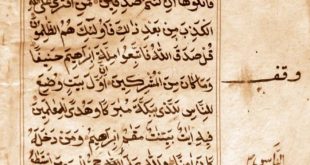 فَاتْلُوهَا إِنْ كُنْتُمْ صَٰدِقِينَ فَمَنِ افْتَرَىٰ
الْكَذِبَ مِنْ بَعْدِ ذَٰلِكَ فَأُولَٰئِكَ هُمُ الظَّٰلِمُونَ
قُلْ صَدَقَ اللَّهُ فَاتَّبِعُوا مِلَّةَ إِبْرَٰهِيمَ حَنِيفًا
وَمَا كَانَ مِنَ الْمُشْرِكِينَ إِنَّ أَوَّلَ بَيْتٍ وُضِعَ
لِلنَّاسِ لَلَّذِي بِبَكَّةَ مُبَٰرَكًا وَهُدًى لِلْعَٰلَمِينَ
فِيهِ ءَايَٰتٌ بَيِّنَٰتٌ مَقَامُ إِبْرَٰهِيمَ وَمَنْ دَخَلَهُ
وقف